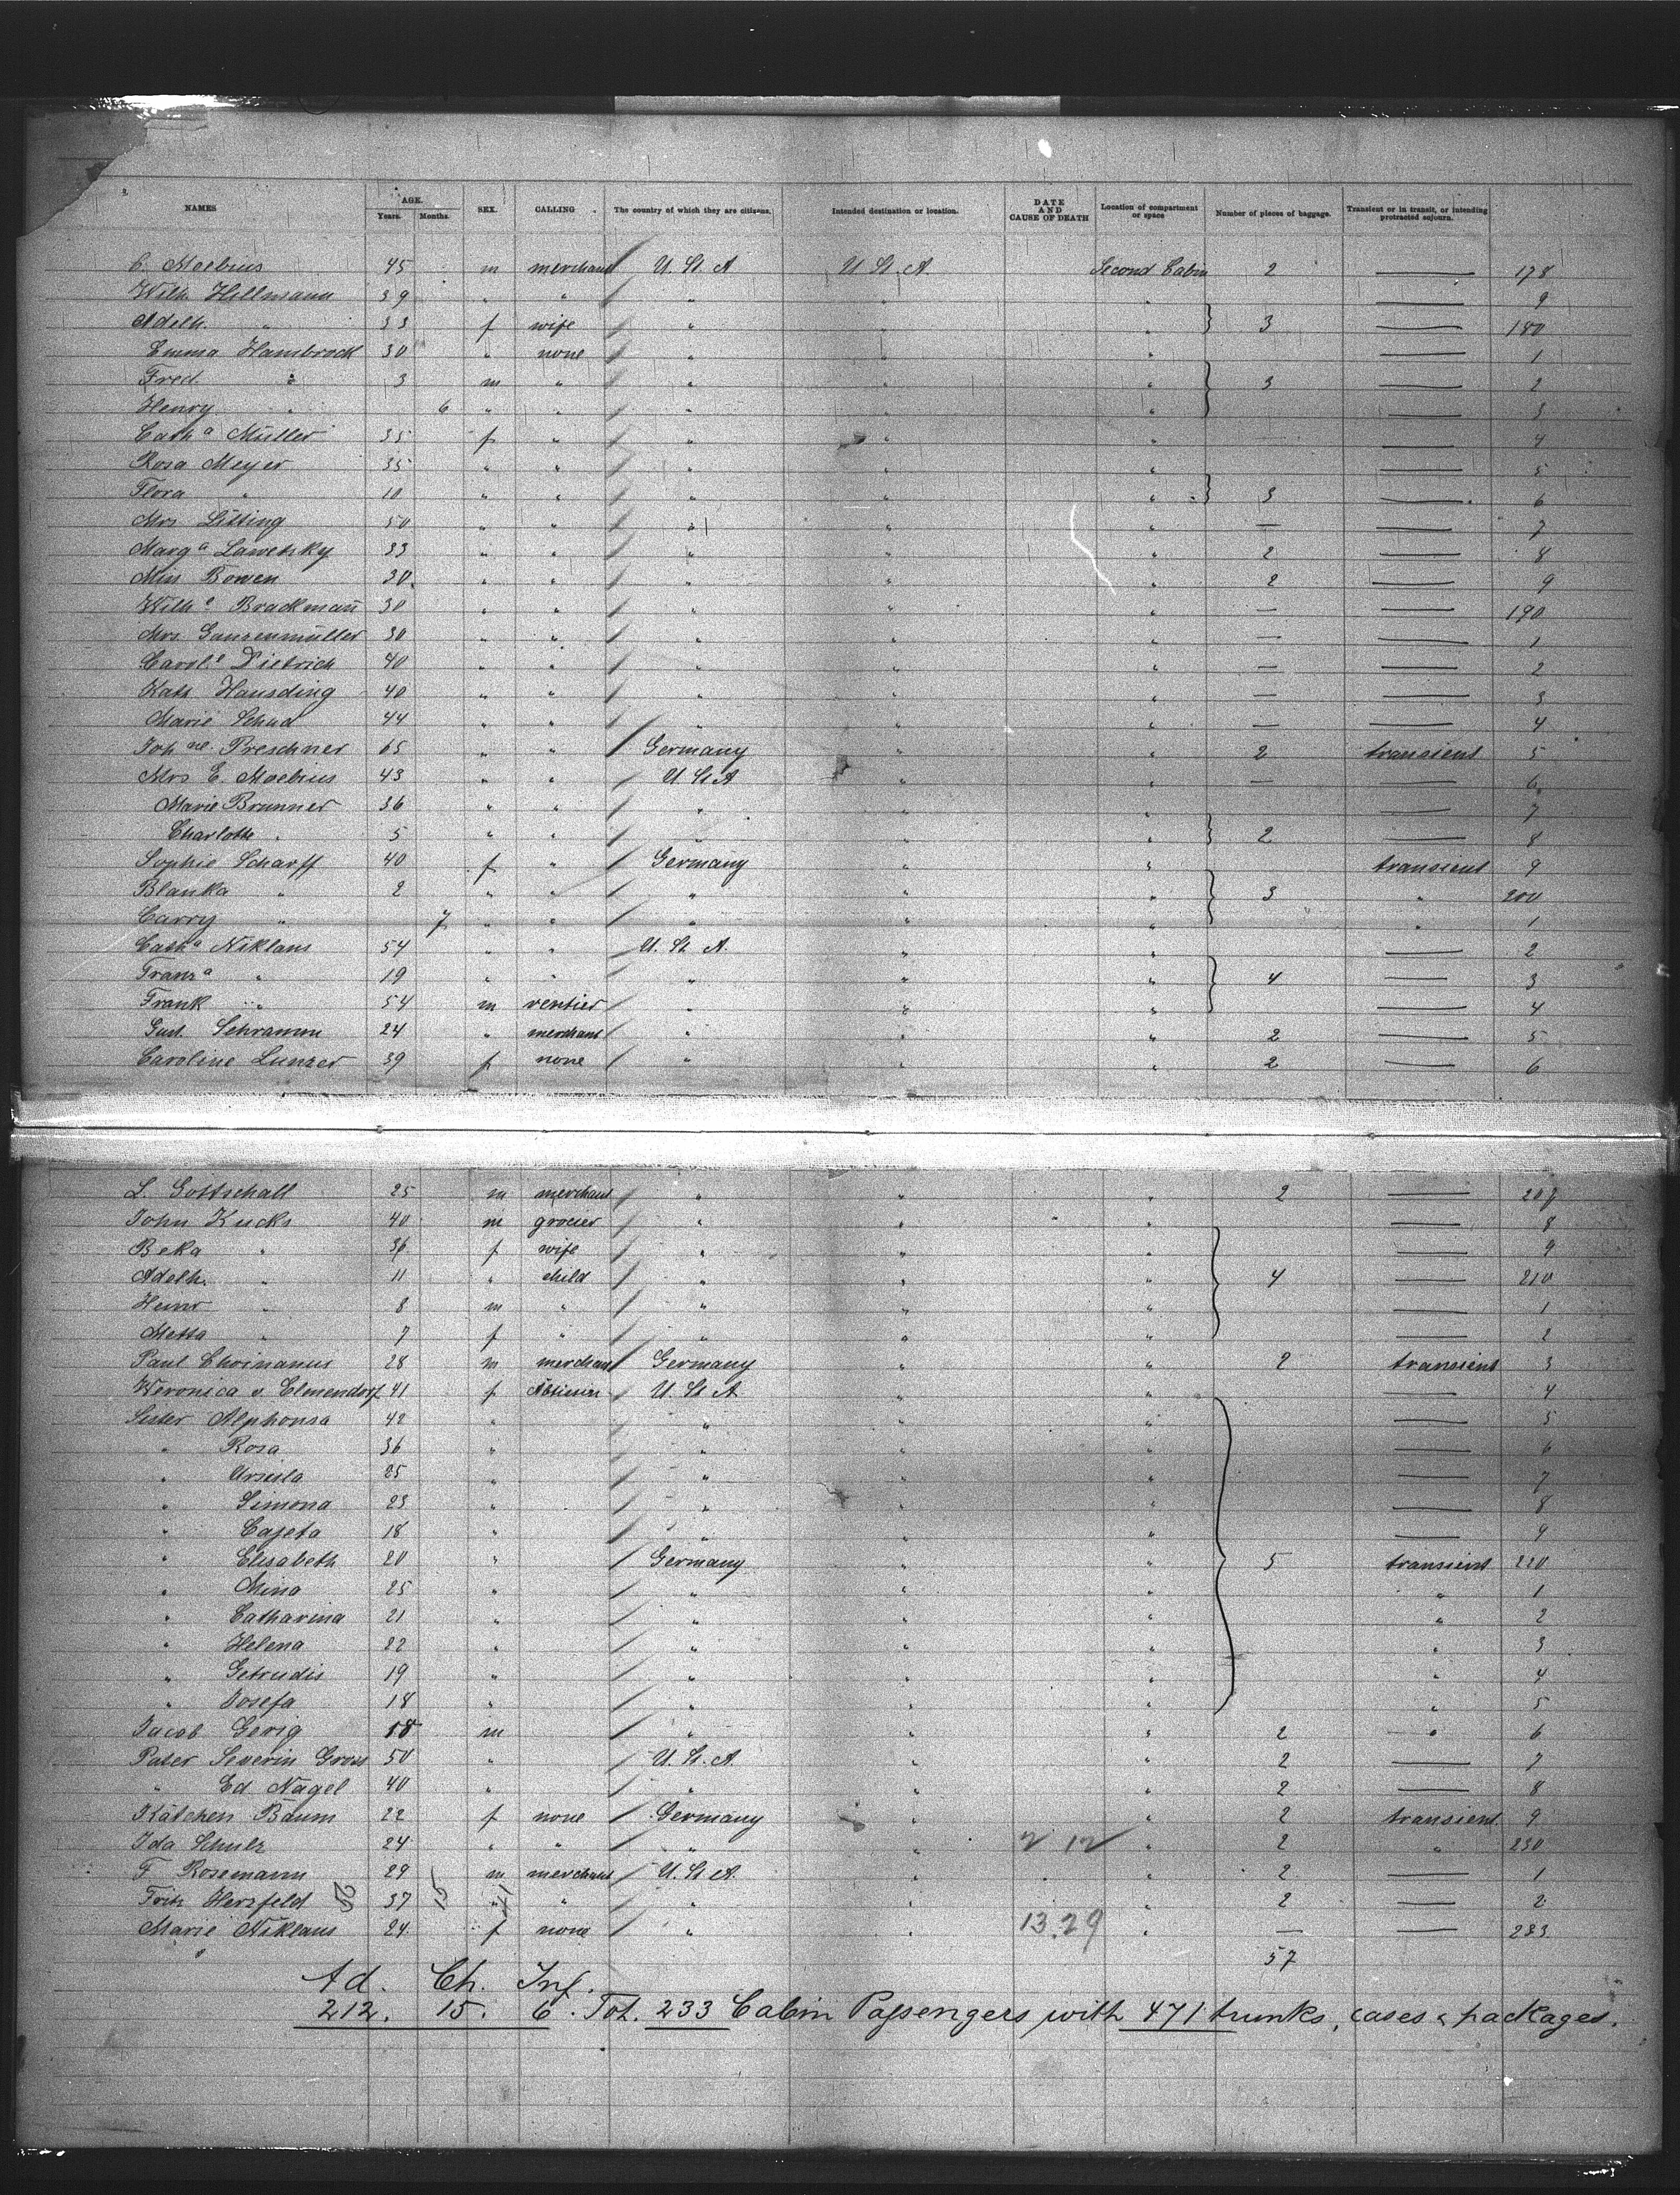 NAMES AGE. Years. Months. SEX. CALLING The country of which they are citizens. Intended destination or location. DATE AND CAUSE OF DEATH Location of compartment or space Number of pieces of baggage. Transient or in transit, or intending protracted sojourn.
C. Moebius 45 m merchant U. St. A U. St. A. Second Cabin 2 — 178
Wilh Hillmann 39 " " " " " — 9
Adelh. " 33 f wife " " " 3 — 180
Emma Hambrock 30 " none " " " — 1
Fred. " 3 m " " " " 3 — 2
Henry " 6 " " " " " — 3
Cath a Müller 35 f " " " " — — 4
Rosa Meyer 35 " " " " " — 5
Flora " 10 " " " " " 3 — 6
Mrs Litting 50 " " " " " — — 7
Marg a Lawetsky 33 " " " " " 2 — 8
Miss Bowen 30 " " " " " 2 — 9
Wilh e Brackmañ 30 " " " " " — — 190
Mrs. Ganzenmüller 30 " " " " " — — 1
Carol e Dietrich 40 " " " " " — — 2
Kath Hausding 40 " " " " " — — 3
Marie Schud 44 " " " " " — — 4
Joh ne. Preschner 65 " " Germany " " 2 transient 5
Mrs E. Moebius 43 " " U St A " " — — 6
Marie Brunner 36 " " " " " — 7
Charlotte " 5 " " " " " 2 — 8
Sophie Scharff 40 f " Germany " " transient 9
Blanka " 2 " " " " " 3 " 200
Carry " 7 " " " " " " 1
Cath a Niklaus 54 " " U. St A. " " — 2
Franz a " 19 " " " " " 4 — 3
Frank " 54 m rentier " " " — 4
Gust. Schramm 24 " merchant " " " 2 — 5
Caroline Lunzer 39 f none " " " 2 — 6
L. Gottschall 25 m merchant " " " 2 — 207
John Kucks 40 m grocer " " " — 8
Beka " 36 f wife " " " — 9
Adelh. " 11 " child " " " 4 — 210
Heinr " 8 m " " " " — 1
Metta " 7 f " " " " — 2
Paul Choinanus 28 m merchant Germany " " 2 transient 3
Weronica v. Elmendorf 41 f U. St A. " " — 4
Sister Alphonsa 42 " " " " — 5
" Rosa 36 " " " " — 6
" Ursula 25 " " " " — 7
" Simona 23 " " " " — 8
" Cajeta 18 " " " " — 9
" Elisabeth 20 " Germany " " 5 transient 220
" Mina 25 " " " " " 1
" Catharina 21 " " " " " 2
" Helena 22 " " " " " 3
" Getrudis 19 " " " " " 4
" Josefa 18 " " " " " 5
Jacob Gerig 18 m " " " 2 " 6
Pater Severin Gross 50 " U. St. A. " " 2 — 7
" Ed Nagel 40 " " " " 2 — 8
Kätchen Baum 22 f none Germany " " 2 transient. 9
Ida Schulz 24 " " " " 2 12 " 2 " 230
F Rosemann 29 m merchant U. St A. " " 2 — 1
Fritz Herzfeld 37 " " " " " 2 — 2
Marie Niklaus 24 f none " " 13.29 " — — 233
57
Ad. Ch. Inf.
212. 15. 6. Tot. 233 Cabin Passengers with 471 trunks, cases & packages.